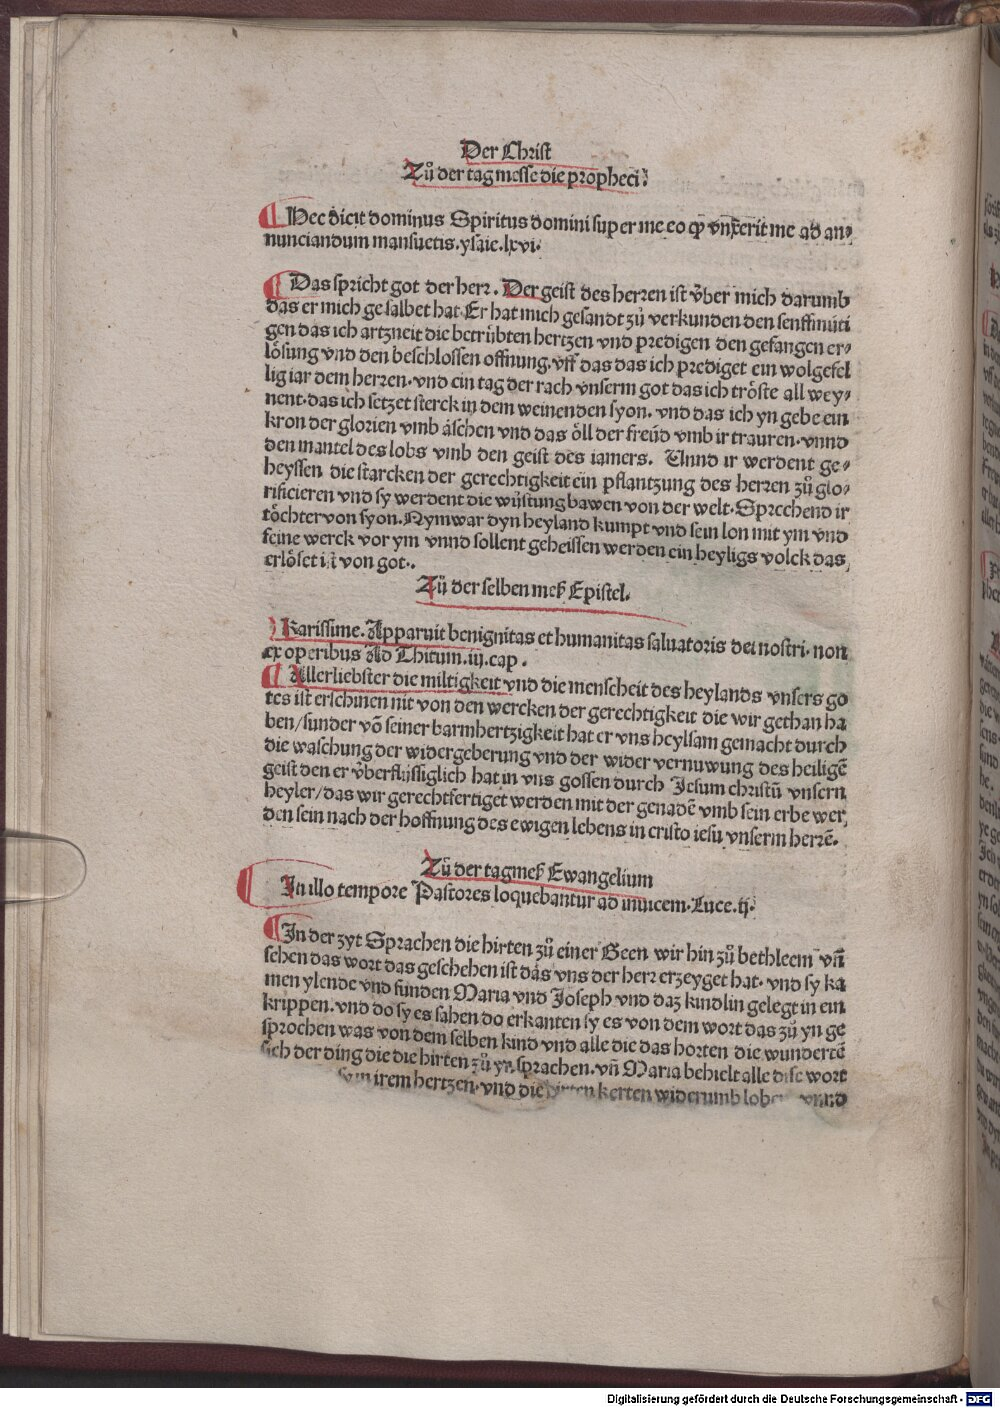 Der Christ
Zů der tag messe die propheci:
Hec dicit dominus Spiritus domini super me eo ꝙ vnxerit me ad an⸗
nunciandum mansuetis. ysaie. lxvi.
Das spricht got der herr. Der geist des herren ist v̊ber mich darumb
das er mich gesalbet hat Er hat mich gesandt zů verkunden den senfftmüti
gen das ich artzneit die betrübten hertzen vnd predigen den gefangen er⸗
lösung vnd den beschlossen offnung. vff das das ich prediget ein wolgefel
lig iar dem herren. vnd ein tag der rach vnserm got das ich tröste all wey⸗
nent. das ich setzet sterck in dem weinenden syon. vnd das ich yn gebe ein
kron der glorien vmb äschen vnd das öll der freüd vmb ir trauren. vnnd
den mantel des lobs vmb den geist des iamers. Unnd ir werdent ge⸗
heyssen die starcken der gerechtigkeit ein pflantzung des herren zů glo⸗
rificieren vnd sy werdent die wüstung bawen von der welt. Sprechend ir
töchter von syon. Nym war dyn heyland kumpt vnd sein lon mit ym vnd
seine werck vor ym vnnd sollent geheissen werden ein heyligs volck das
erlöset ist von got..
Zů der selben meß Epistel.
Karissime. Apparuit benignitas et humanitas saluatoris dei nostri. non
ex operibus Ad Thitum. iij. cap.
Allerliebster die miltigkeit vnd die menscheit des heylands vnsers go
tes ist erschinen nit von den wercken der gerechtigkeit die wir gethan ha
ben/ sunder vō seiner barmhertzigkeit hat er vns heylsam gemacht durch
die waschung der widergeberung vnd der wider vernuwung des heiligē
geist den er v̊berflüssiglich hat in vns gossen durch Jesum christū vnsern
heyler/ das wir gerechtfertiget werden mit der genadē vmb sein erbe wer
den sein nach der hoffnung des ewigen lebens in cristo iesu vnserm herrē.
Zů der tagmeß Ewangelium
In illo tempore Pastores loquebantur ad inuicem. Luce. ij.
In der zyt Sprachen die hirten zů einer Geen wir hin zů bethleem vn̄
sehen das wort das geschehen ist das vns der herr erzeyget hat. vnd sy ka
men ylende vnd funden Maria vnd Joseph vnd daz kindlin gelegt in ein
krippen. vnd do sy es sahen do erkanten sy es von dem wort das zů yn ge
sprochen was von dem selben kind vnd alle die das horten die wundertē
sich der ding die die hirten zů yn sprachen. vn̄ Maria behielt alle dise wort
in irem hertzen. vnd die hirten kerten widerumb vnnd
Digitalisierung gefördert durch die Deutsche Forschungsgemeinschaft - DFG